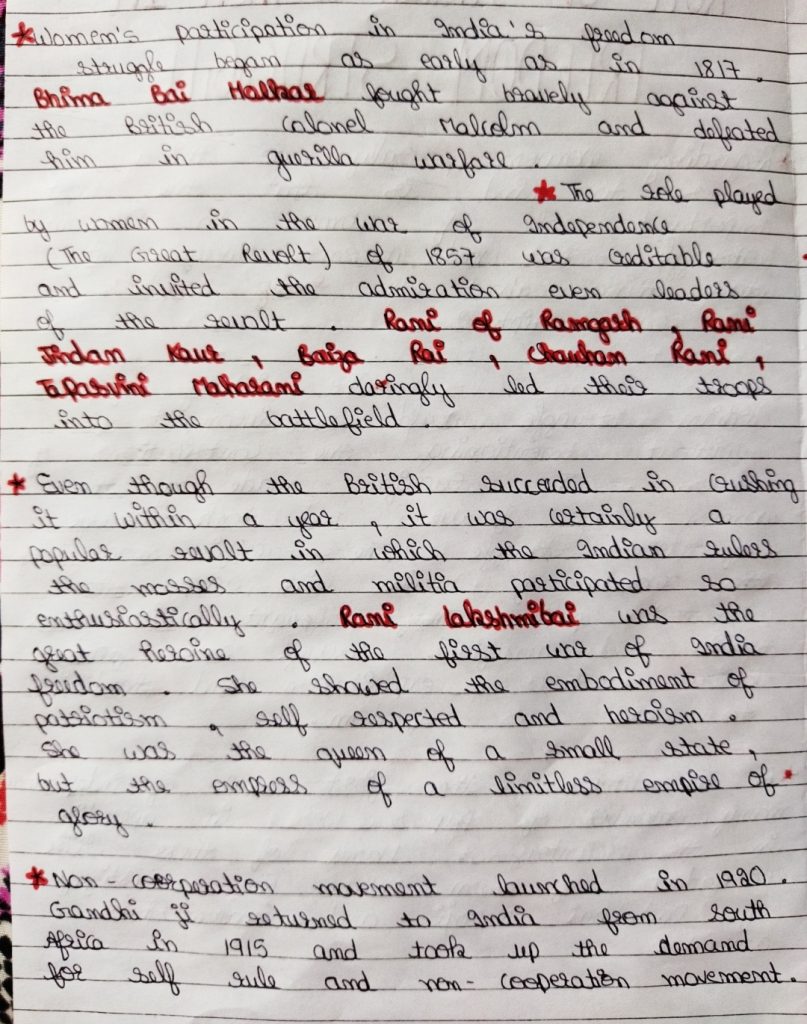 *Women's participation in India's freedom
struggle began as early as in 1817.
Bhima Bai Halkar fought bravely against
the British colonel Malcolm and defeated
him in guerilla warfare.
*The role played
by women in the war of Independence
(The Great Revolt) of 1857 was creditable
and invited the admiration even leaders
of the revolt. Rani of Ramgarh, Rani
Jindan Kaur, Baiza Rai, Chauhan Rani,
Tapasvini Maharani daringly led their troops
into the battlefield.
*Even though the British succeeded in crushing
it within a year, it was certainly a
popular revolt in which the Indian rulers
the masses and militia participated so
enthusiastically. Rani lakshmibai was the
great heroine of the first war of India
freedom. She showed the embodiment of
patriotism, self respected and heroism.
She was the queen of a small state,
but the empress of a limitless empire of
glory.
*Non-cooperation movement launched in 1920.
Gandhi ji returned to India from south
Africa in 1915 and took up the demand
for self rule and non-cooperation movement.